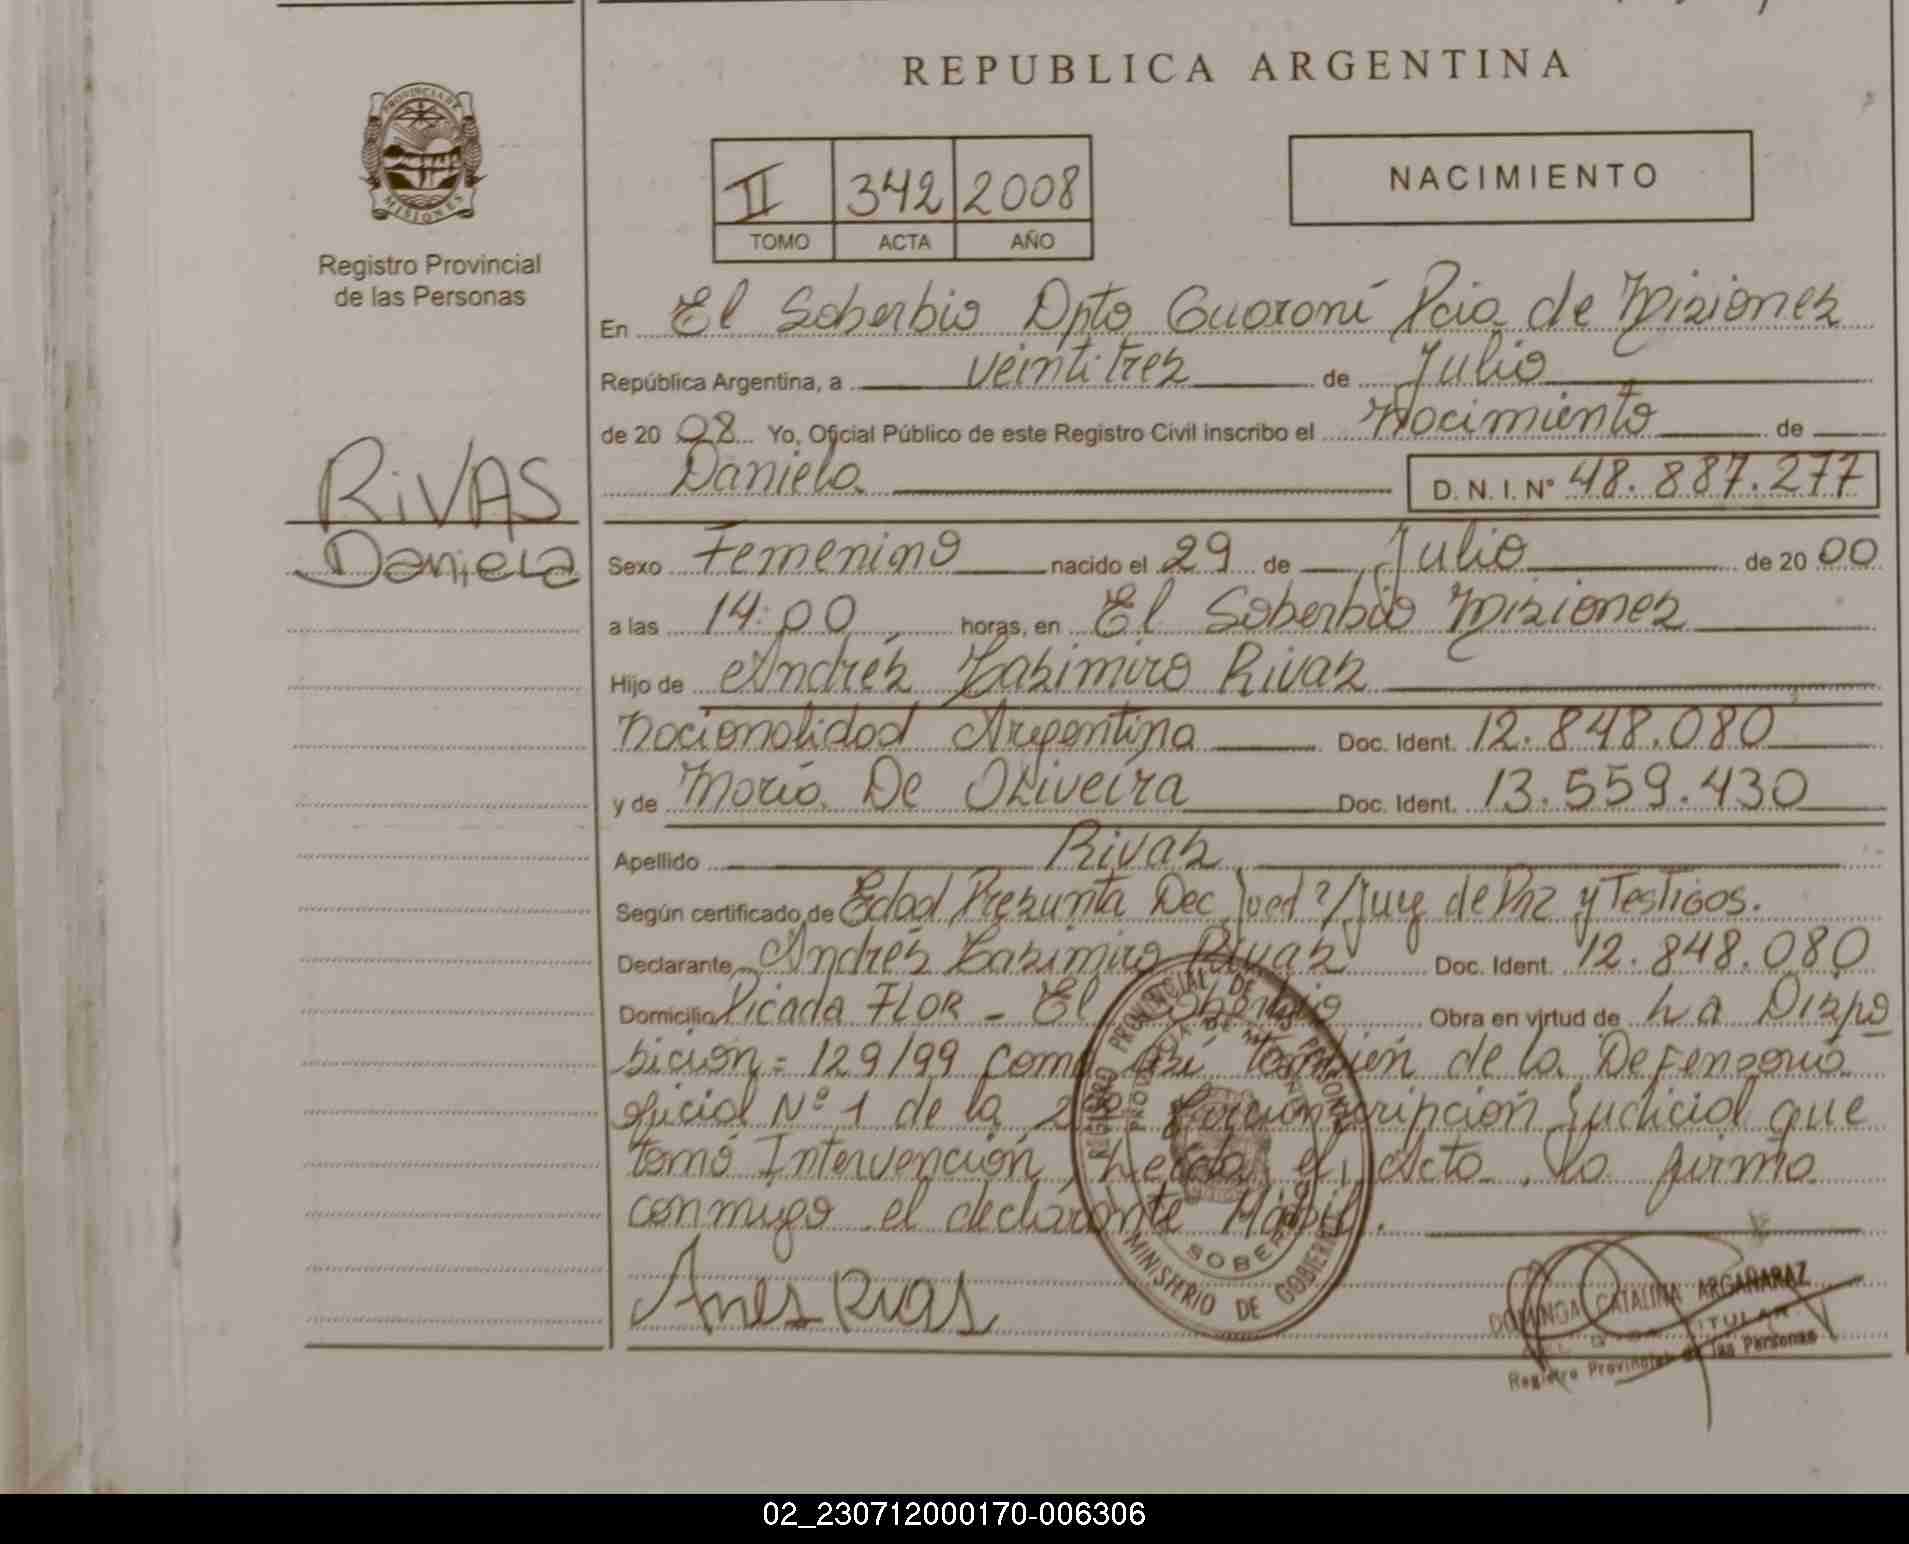 REPUBLICA ARGENTINA
PROVINCIA DE
MISIONES
Registro Provincial
de las Personas
II 342 2008
TOMO ACTA AÑO
NACIMIENTO
En El Soberbio Dpto Guaraní Pcia de Misiones
República Argentina, a veintitres de Julio
de 20 08 Yo, Oficial Público de este Registro Civil inscribo el Nacimiento de
Daniela D. N. I. Nº 48.887.277
RIVAS
Daniela
Sexo Femenino nacido el 29 de Julio de 20 00
a las 14:00 horas, en El Soberbio Misiones
Hijo de Andrés Casimiro Rivas
nacionalidad Argentina Doc. Ident. 12.848.080
y de María De Oliveira Doc. Ident. 13.559.430
Apellido Rivas
Según certificado de Edad Presunta Dec Jued Juez de Paz y Testigos.
Declarante Andrés Casimiro Rivas Doc. Ident. 12.848.080
Domicilio Picada FLOR - El Soberbio Obra en virtud de La Dispo
sicion = 129/99 como así también de la Defensoria
oficial Nº 1 de la 2da Circunscripción Judicial que
tomó Intervención, Leída el Acta, la firma
conmigo el declarante Hábil.
REGISTRO PROVINCIAL DE LAS PERSONAS
PROVINCIA DE MISIONES
SOBERBIO
MINISTERIO DE GOBIERNO
Anes Rivas
DOMINGA CATALINA ARGAÑARAZ
TITULAR
Registro Provincial de las Personas
02_230712000170-006306